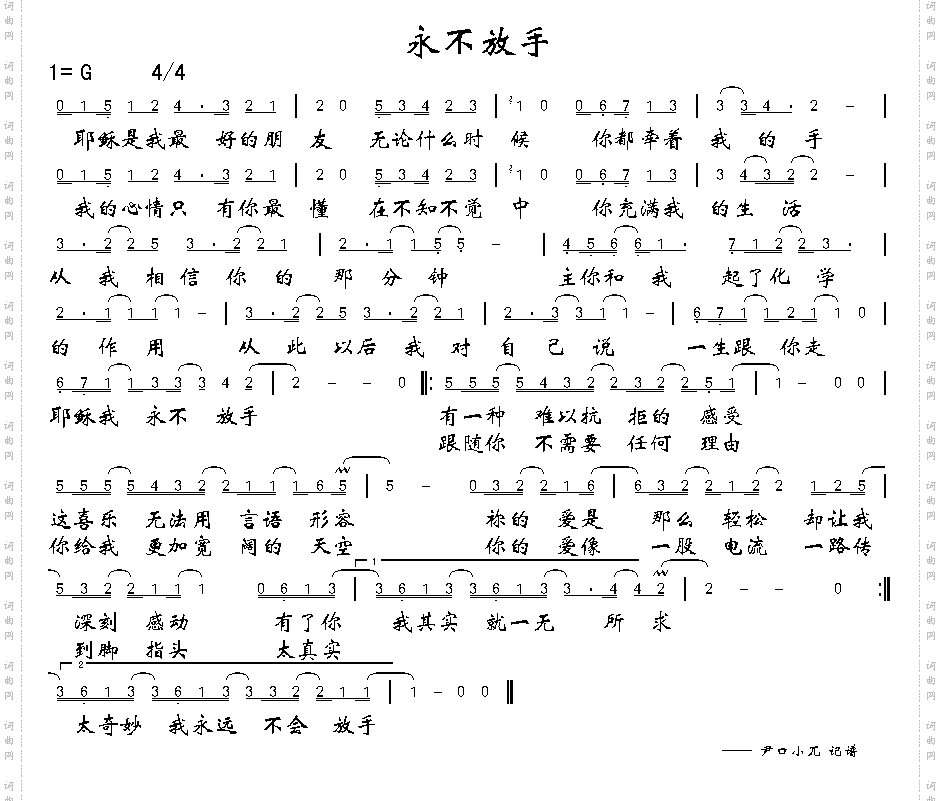 永不放手
1= G 4/4
0 1 5 1 2 4 · 3 2 1 | 2 0 5 3 4 2 3 | 2 1 0 0 6 7 1 3 | 3 3 4 · 2 – |
耶稣是我最 好的朋 友 无论什么时 候 你都牵着 我 的 手
0 1 5 1 2 4 · 3 2 1 | 2 0 5 3 4 2 3 | 2 1 0 0 6 7 1 3 | 3 4 3 2 2 – |
我的心情只 有你最 懂 在不知不觉 中 你充满我 的生 活
3 · 2 2 5 3 · 2 2 1 | 2 · 1 1 5 5 – | 4 5 6 6 1 · 7 1 2 2 3 · |
从 我 相 信 你 的 那 分 钟 主你和 我 起了化 学
2 · 1 1 1 1 – | 3 · 2 2 5 3 · 2 2 1 | 2 · 3 3 1 1 – | 6 7 1 1 2 1 1 0 |
的 作 用 从 此 以后 我 对 自 己 说 一生跟 你走
6 7 1 1 3 3 3 4 2 | 2 – – 0 ‖: 5 5 5 5 4 3 2 2 3 2 2 5 1 | 1 – 0 0 |
耶稣我 永不 放手 有一种 难以抗 拒的 感受
跟随你 不需要 任何 理由
5 5 5 5 4 3 2 2 1 1 1 6 5 | 5 – 0 3 2 2 1 6 | 6 3 2 2 1 2 2 1 2 5 |
这喜乐 无法用 言语 形容 祢的 爱是 那么 轻松 却让我
你给我 更加宽 阔的 天空 你的 爱像 一股 电流 一路传
5 3 2 2 1 1 1 0 6 1 3 | 1 3 6 1 3 3 6 1 3 3 · 4 4 2 | 2 – – 0 :‖
深刻 感动 有了你 我其实 就一无 所 求
到脚 指头 太真实
2
3 6 1 3 3 6 1 3 3 3 2 2 1 1 | 1 – 0 0 ‖
太奇妙 我永远 不会 放手
—— 尹口小兀 记谱
词曲网